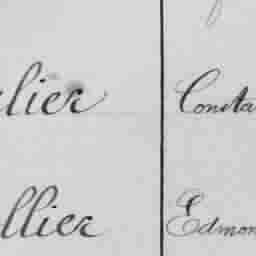 lier Consta
llier Edmon